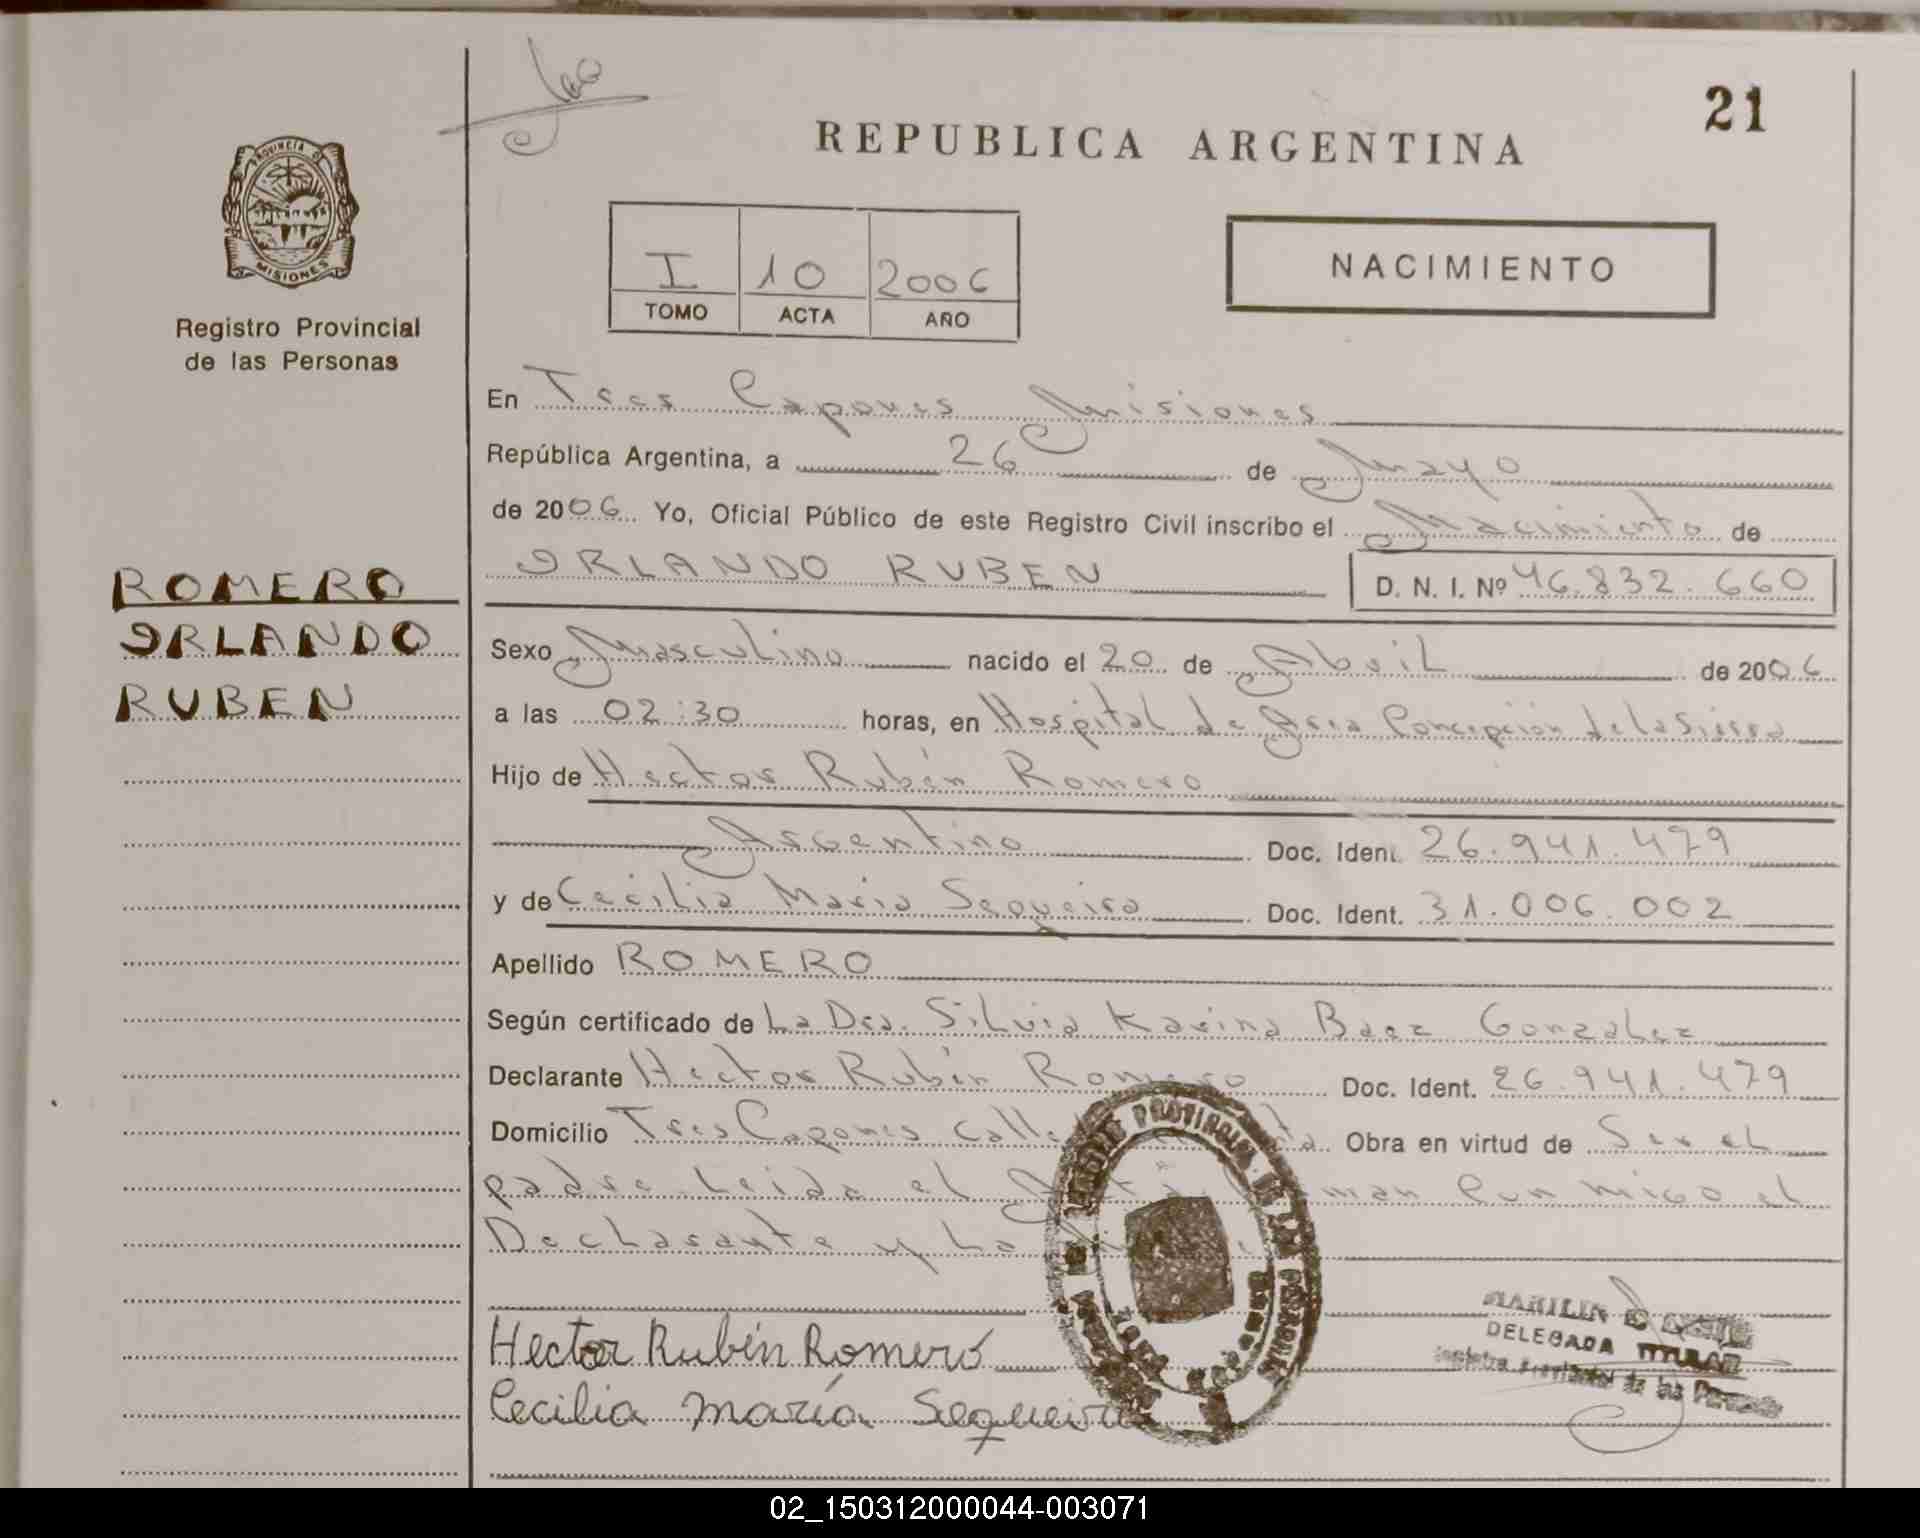 21
REPUBLICA ARGENTINA
PROVINCIA D
MISIONES
Registro Provincial
de las Personas
I 10 2006
TOMO ACTA AÑO
NACIMIENTO
En Tres Capones Misiones
República Argentina, a 26 de Mayo
de 2006 Yo, Oficial Público de este Registro Civil inscribo el Nacimiento de
ORLANDO RUBEN D. N. I. Nº 46.832.660
ROMERO
ORLANDO
RUBEN
Sexo Masculino nacido el 20 de Abril de 2006
a las 02:30 horas, en Hospital de Area Concepción de la Sierra
Hijo de Hector Rubén Romero
Argentino Doc. Ident. 26.941.479
y de Cecilia Maria Sequeira Doc. Ident. 31.006.002
Apellido ROMERO
Según certificado de La Dra. Silvia Karina Baez Gonzalez
Declarante Hector Rubén Romero Doc. Ident. 26.941.479
Domicilio Tres Capones Calle Obra en virtud de Ser el
padre. Leida el Acta Conmigo el
Declarante y La
Hector Rubén Romero
Cecilia María Sequeira
MARILIN
DELEGADA TITULAR
Registro Provincial de las Personas
02_150312000044-003071